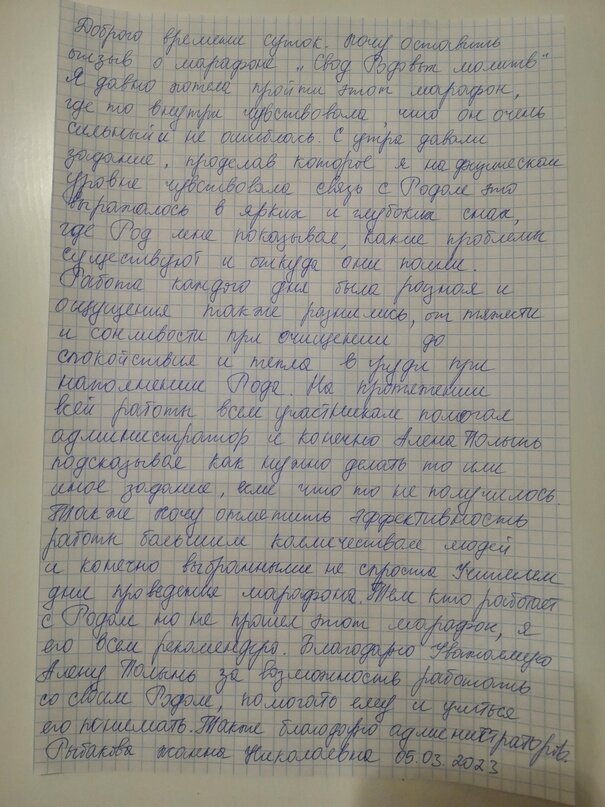 Доброго времени суток. Хочу оставить
отзыв о марафоне „Свод Родовых молитв"
Я давно хотела пройти этот марафон,
где то внутри чувствовала, что он очень
сильный и не ошиблась. С утра давали
задание, проделав которое я на физическом
уровне чувствовала связь с Родом это
выражалось в ярких и глубоких снах,
где Род мне показывал, какие проблемы
существуют и откуда они пошли.
Работа каждого дня была разная и
ощущения также разнились, от тяжести
и сонливости при очищении до
спокойствия и тепла в груди при
наполнении Рода. На протяжении
всей работы всем участникам помогал
администратор и конечно Алена Полынь
подсказывая как нужно делать то или
иное задание, если что то не получилось.
Также хочу отметить эффективность
работы большим количеством людей
и конечно выбранными не спроста Учителем
дни проведения марафона. Тем кто работает
с Родом но не прошел этот марафон, я
его всем рекомендую. Благодарю Уважаемую
Алену Полынь за возможность работать
со своим Родом, помогать ему и учиться
его понимать. Также благодарю администраторов.
Рыбакова Жанна Николаевна 05.03.2023